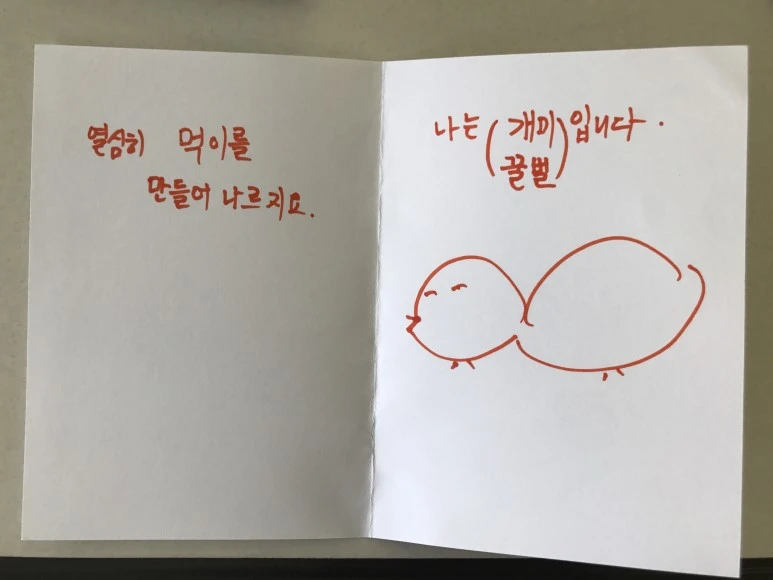 열심히 먹이를
만들어 나르지요.
나는 (개미)입니다.
꿀벌